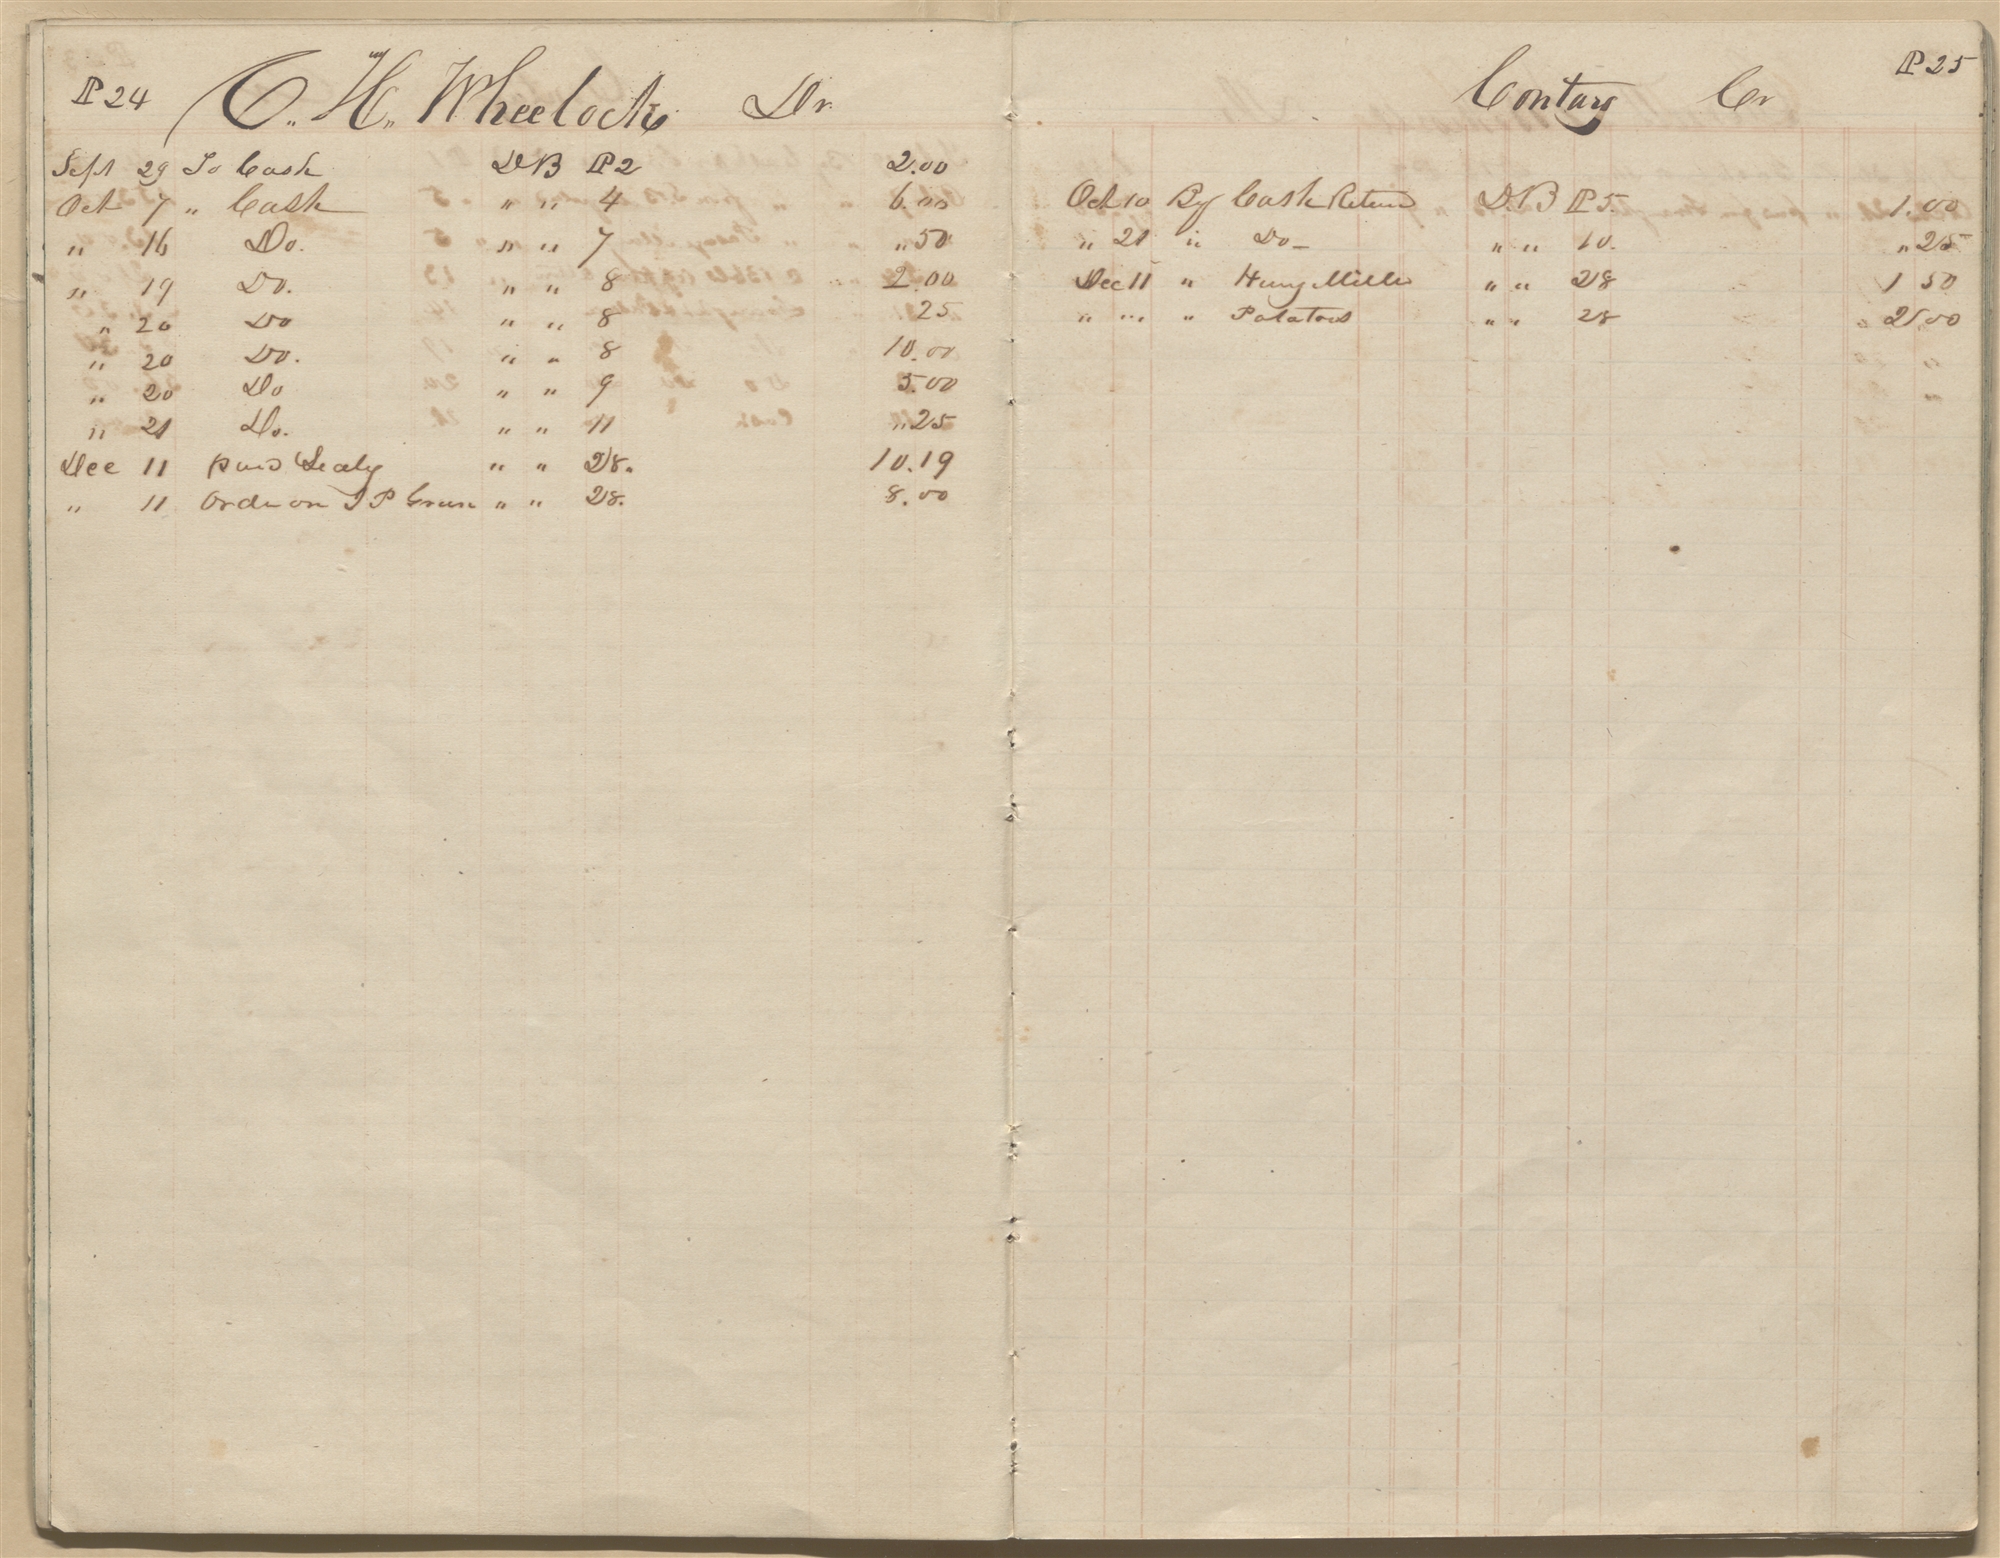 P 24 C. H. Wheelock Dr.
Sept 29 To Cash DB P 2 2.00
Oct 7 " Cash " " 4 6.00
" 16 Do. " " 7 " 50
" 19 Do. " " 8 2.00
" 20 Do " " 8 25
" 20 Do. " " 8 10.00
" 20 Do " " 9 5.00
" 21 Do. " " 11 " 25
Dec 11 paid Sealy " " 28. 10.19
" 11 Order on J P " " 28. 8.00
P 25
Contary Cr
Oct 10 By Cash Return D.B P 5. 1.00
" 21 " Do - " " 10. " 25
Dec 11 " Miller " " 28 1 50
" " " Potatoes " " 28 2 00